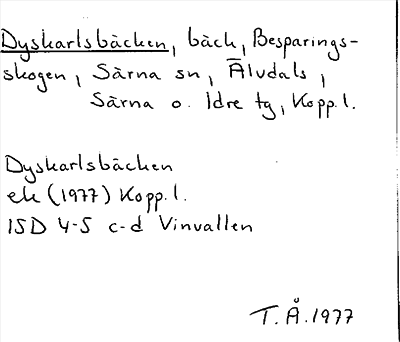 Dyskarlsbäcken, bäck, Besparings-
skogen, Särna sn, Älvdals,
Särna o. Idre tg, Kopp. l.
Dyskarlsbäcken
ek (1977) Kopp. l.
15D 4-5 c-d Vinvallen
T. Å. 1977